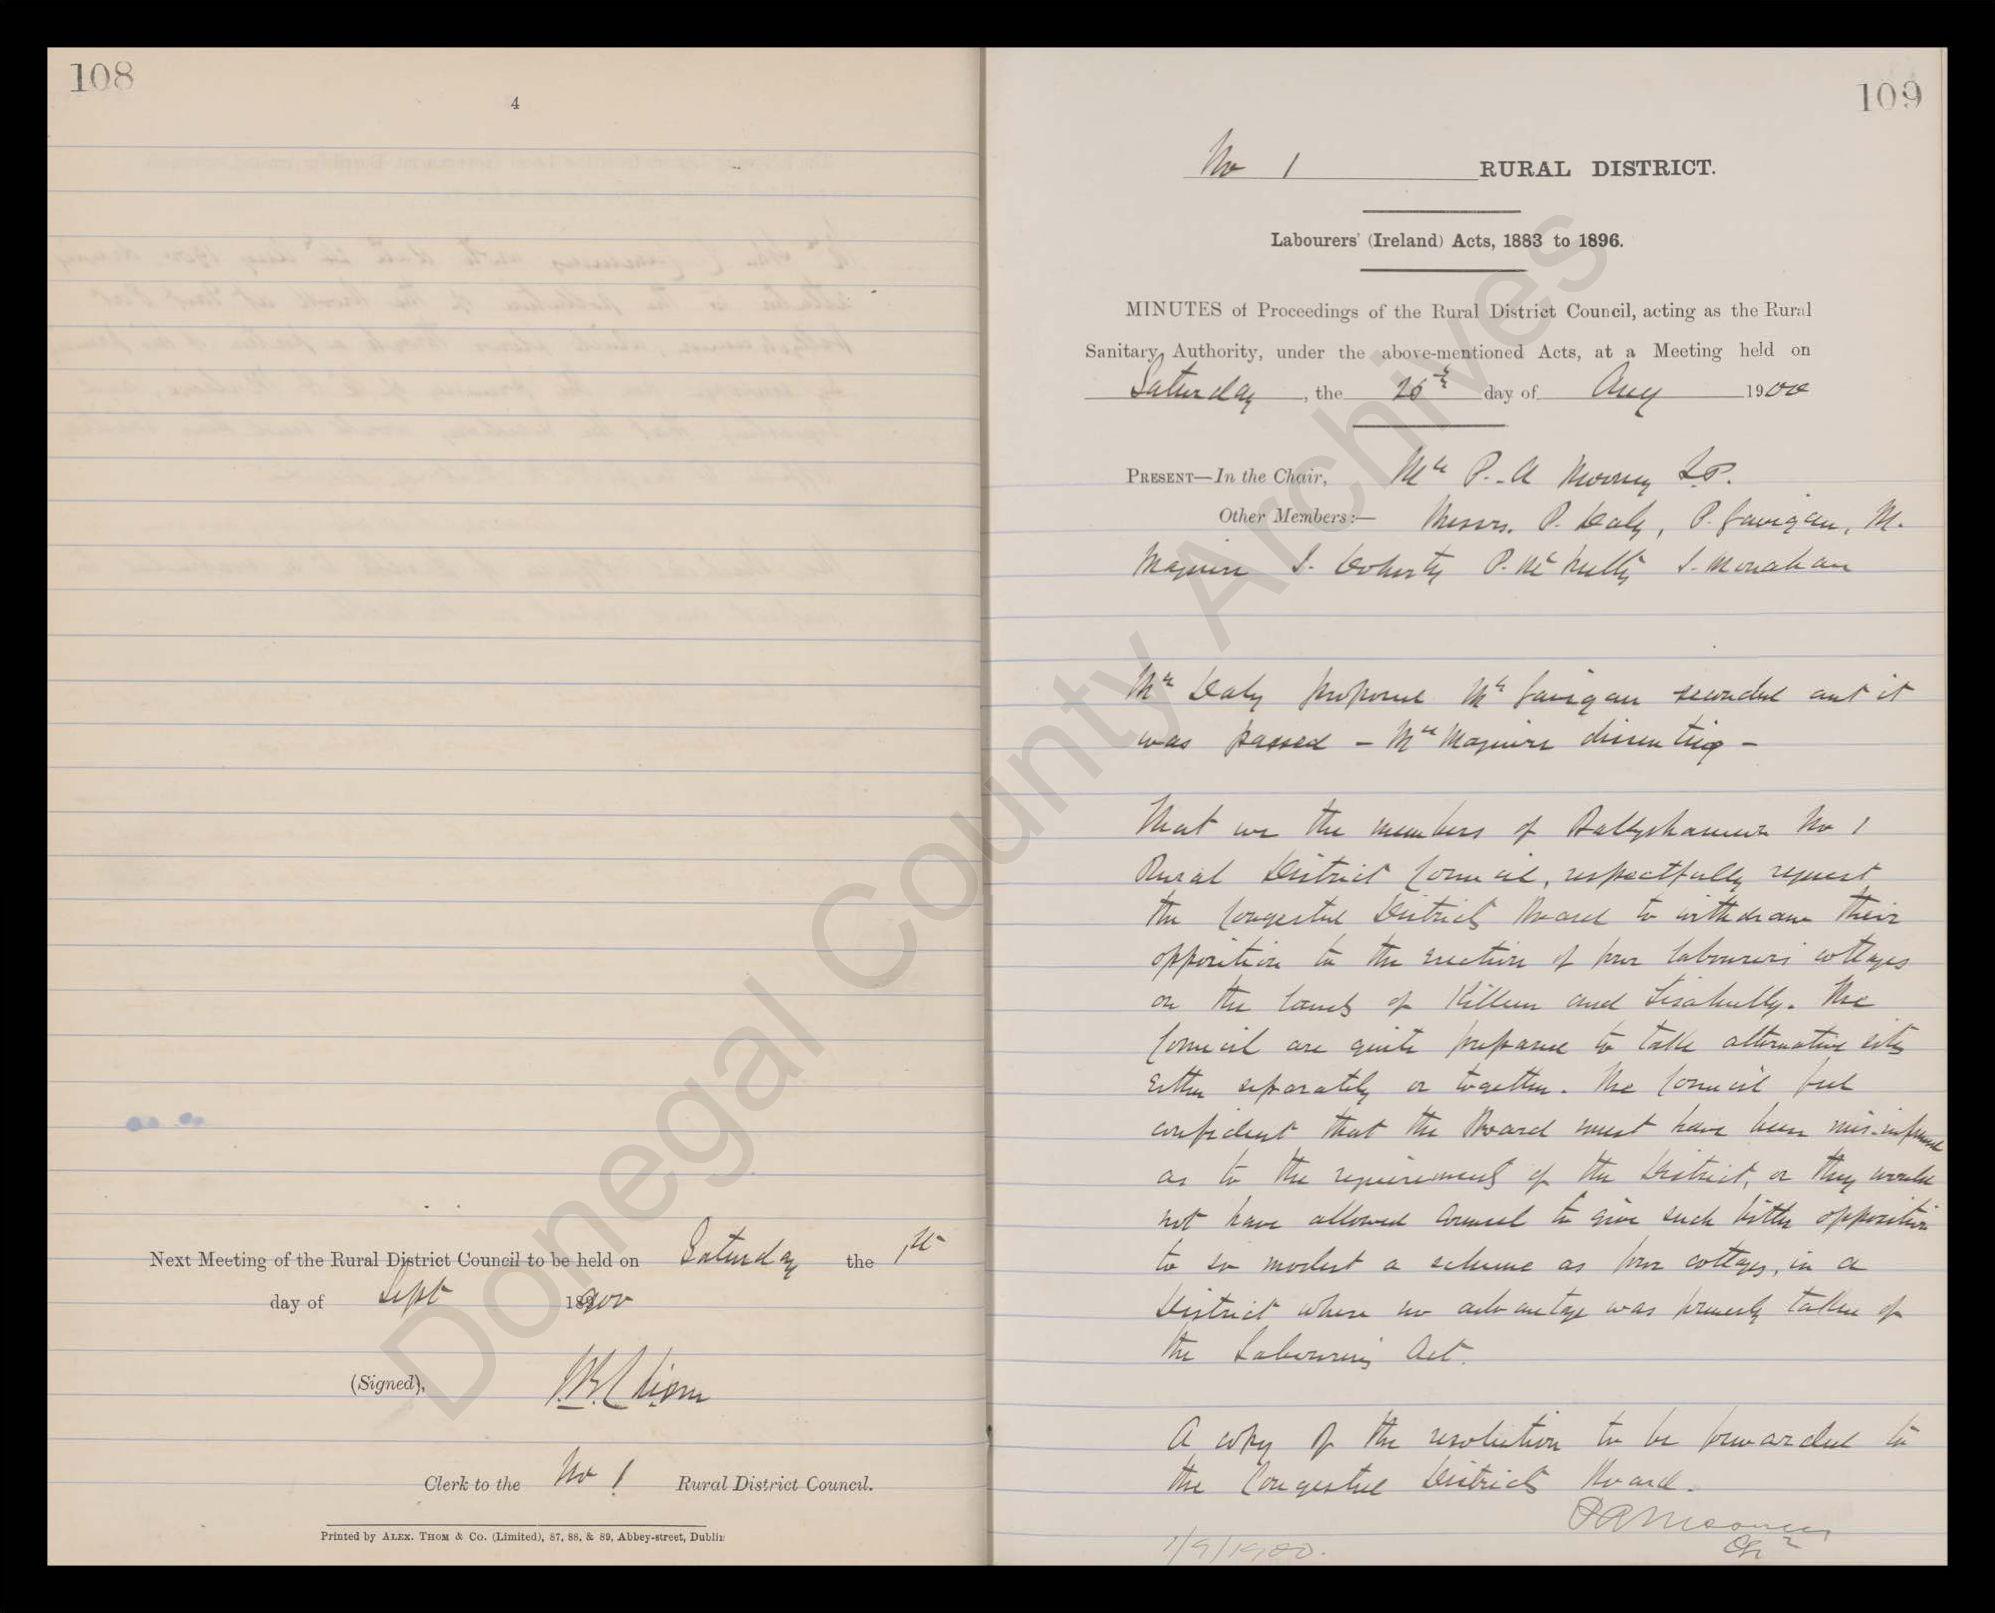 108
4
Next Meeting of the Rural District Council to be held on Saturday the 1st
day of Sept 1900
(Signed),
Clerk to the No 1 Rural District Council.
Printed by ALEX. THOM & Co. (Limited), 87, 88, & 89, Abbey-street, Dublin
109
No 1 RURAL DISTRICT.
Labourers' (Ireland) Acts, 1883 to 1896.
MINUTES of Proceedings of the Rural District Council, acting as the Rural
Sanitary Authority, under the above-mentioned Acts, at a Meeting held on
Saturday, the day of Aug 1900
PRESENT—In the Chair, Mr P. A Mooney J.P.
Other Members:— Messrs. P. Daly, P. Gavigan, M.
Maguire J. Doherty P. McNulty J. Monahan
Mr Daly proposed Mr Gavigan seconded and it
was passed – Mr Maguire dissenting –
That we the members of Ballyshannon No 1
Rural District Council, respectfully request
the Congested Districts Board to withdraw their
opposition to the erection of four labourers cottages
on the lands of and The
Council are quite prepared to take alternative sites
either separately or together. The Council feel
confident that the Board must have been mis-informed
as to the requirements of the District, or they would
not have allowed Counsel to give such bitter opposition
to so modest a scheme as four cottages, in a
District where no advantage was formerly taken of
the Labourers Act.
A copy of the resolution to be forwarded to
the Congested Districts Board.
PA Mooney
1/9/1900. Chn
Donegal County Archives